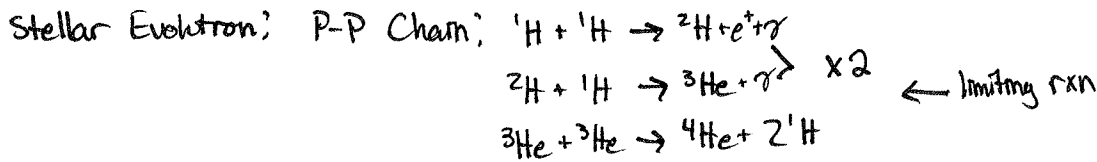 Stellar Evolution: P-P Chain: ¹H + ¹H → ²H + e⁺ + γ
²H + ¹H → ³He + γ > x2
← limiting rxn
³He + ³He → ⁴He + 2¹H